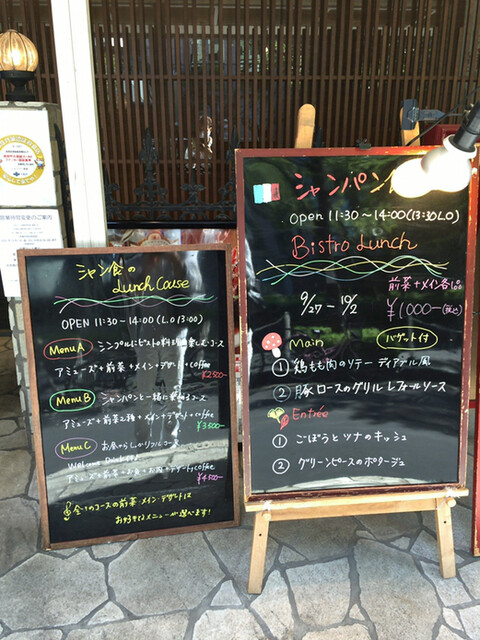 シャン食の
Lunch Couse
OPEN 11:30〜14:00 (L.O 13:00)
Menu A シンプルにビストロ料理を楽しむコース
アミューズ+前菜+メイン+デザート+coffee
¥2500-
Menu B シャンパンと一緒に コース
アミューズ+前菜2種+メイン+デザート+coffee
¥3600-
Menu C お昼からしっかりフルコース
Welcome Drink
アミューズ+前菜+お魚+お肉+デザート+coffee
¥4500-
全てのコースの前菜・メイン・デザートは
お好きなメニューが選べます!
シャンパン
open 11:30〜14:00 (13:30 L.O)
Bistro Lunch
9/27 - 10/2
前菜+メイン各1品
¥1000- (税込)
バゲット付
Main
① 鶏もも肉のソテー ディアブル風
② 豚ロースのグリル レフォールソース
Entrée
① ごぼうとツナのキッシュ
② グリーンピースのポタージュ